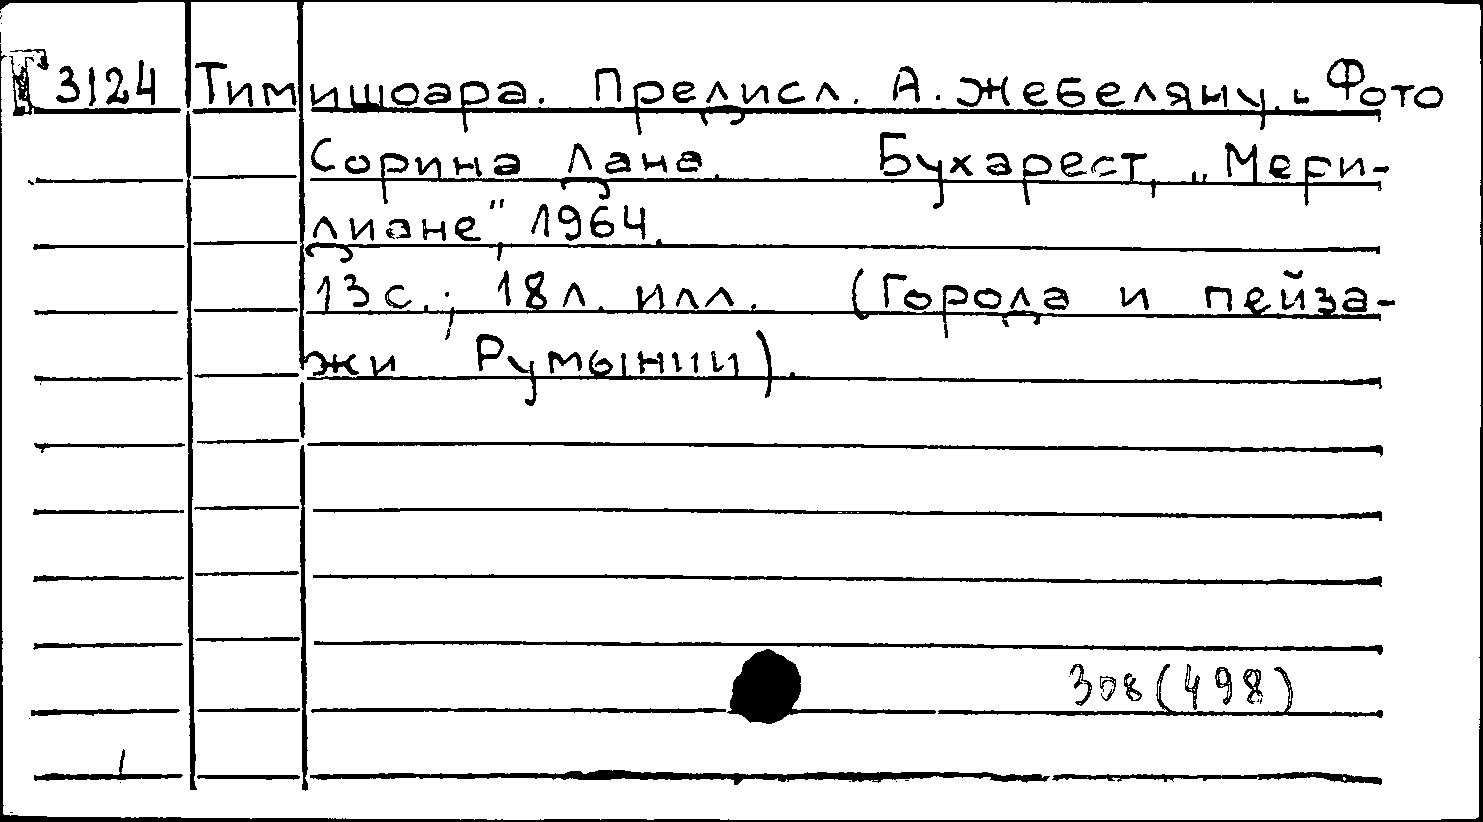 Г 3124 Тимишоара. Предисл. А. Жебеляну. Фото
Сорина Дана. Бухарест, „Мери-
диане", 1964.
13 с.; 18 л. илл. (Города и пейза-
жи Румынии).
308(498)